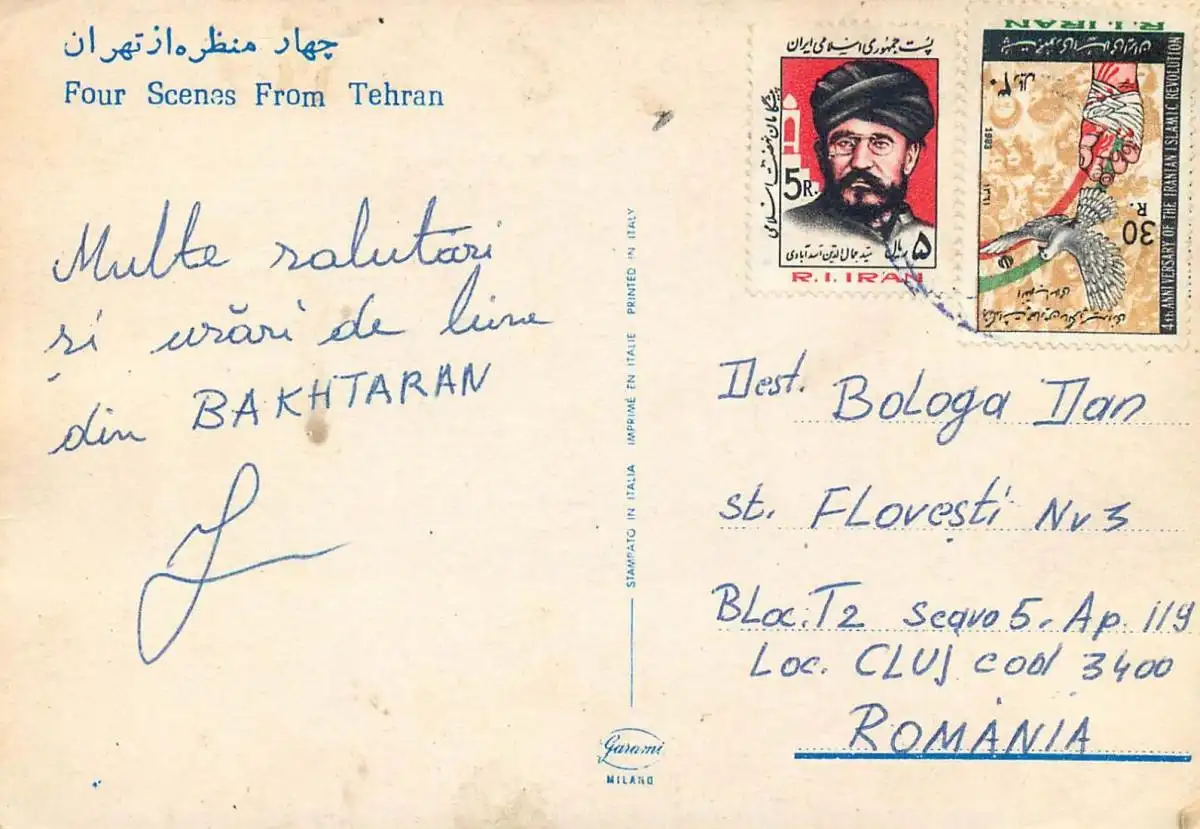 چهار منظره از تهران
Four Scenes From Tehran
Multe salutări
și urări de bine
din BAKHTARAN
STAMPATO IN ITALIA IMPRIMÉ EN ITALIE PRINTED IN ITALY
Garami
MILANO
پست جمهوری اسلامی ایران
پیشگامان نهضت اسلامی
5R.
۵ ریال
سید جمال الدین اسدآبادی
R.I.IRAN
R.I.IRAN
۳۰ ریال
1983
۱۳۶۱
30
R.
4th ANNIVERSARY OF THE IRANIAN ISLAMIC REVOLUTION
Dest. Bologa Dan
st. FLovești Nr 3
BLoc. T2 scara 5. Ap. 119
Loc. CLUJ cod 3400
ROMÂNIA